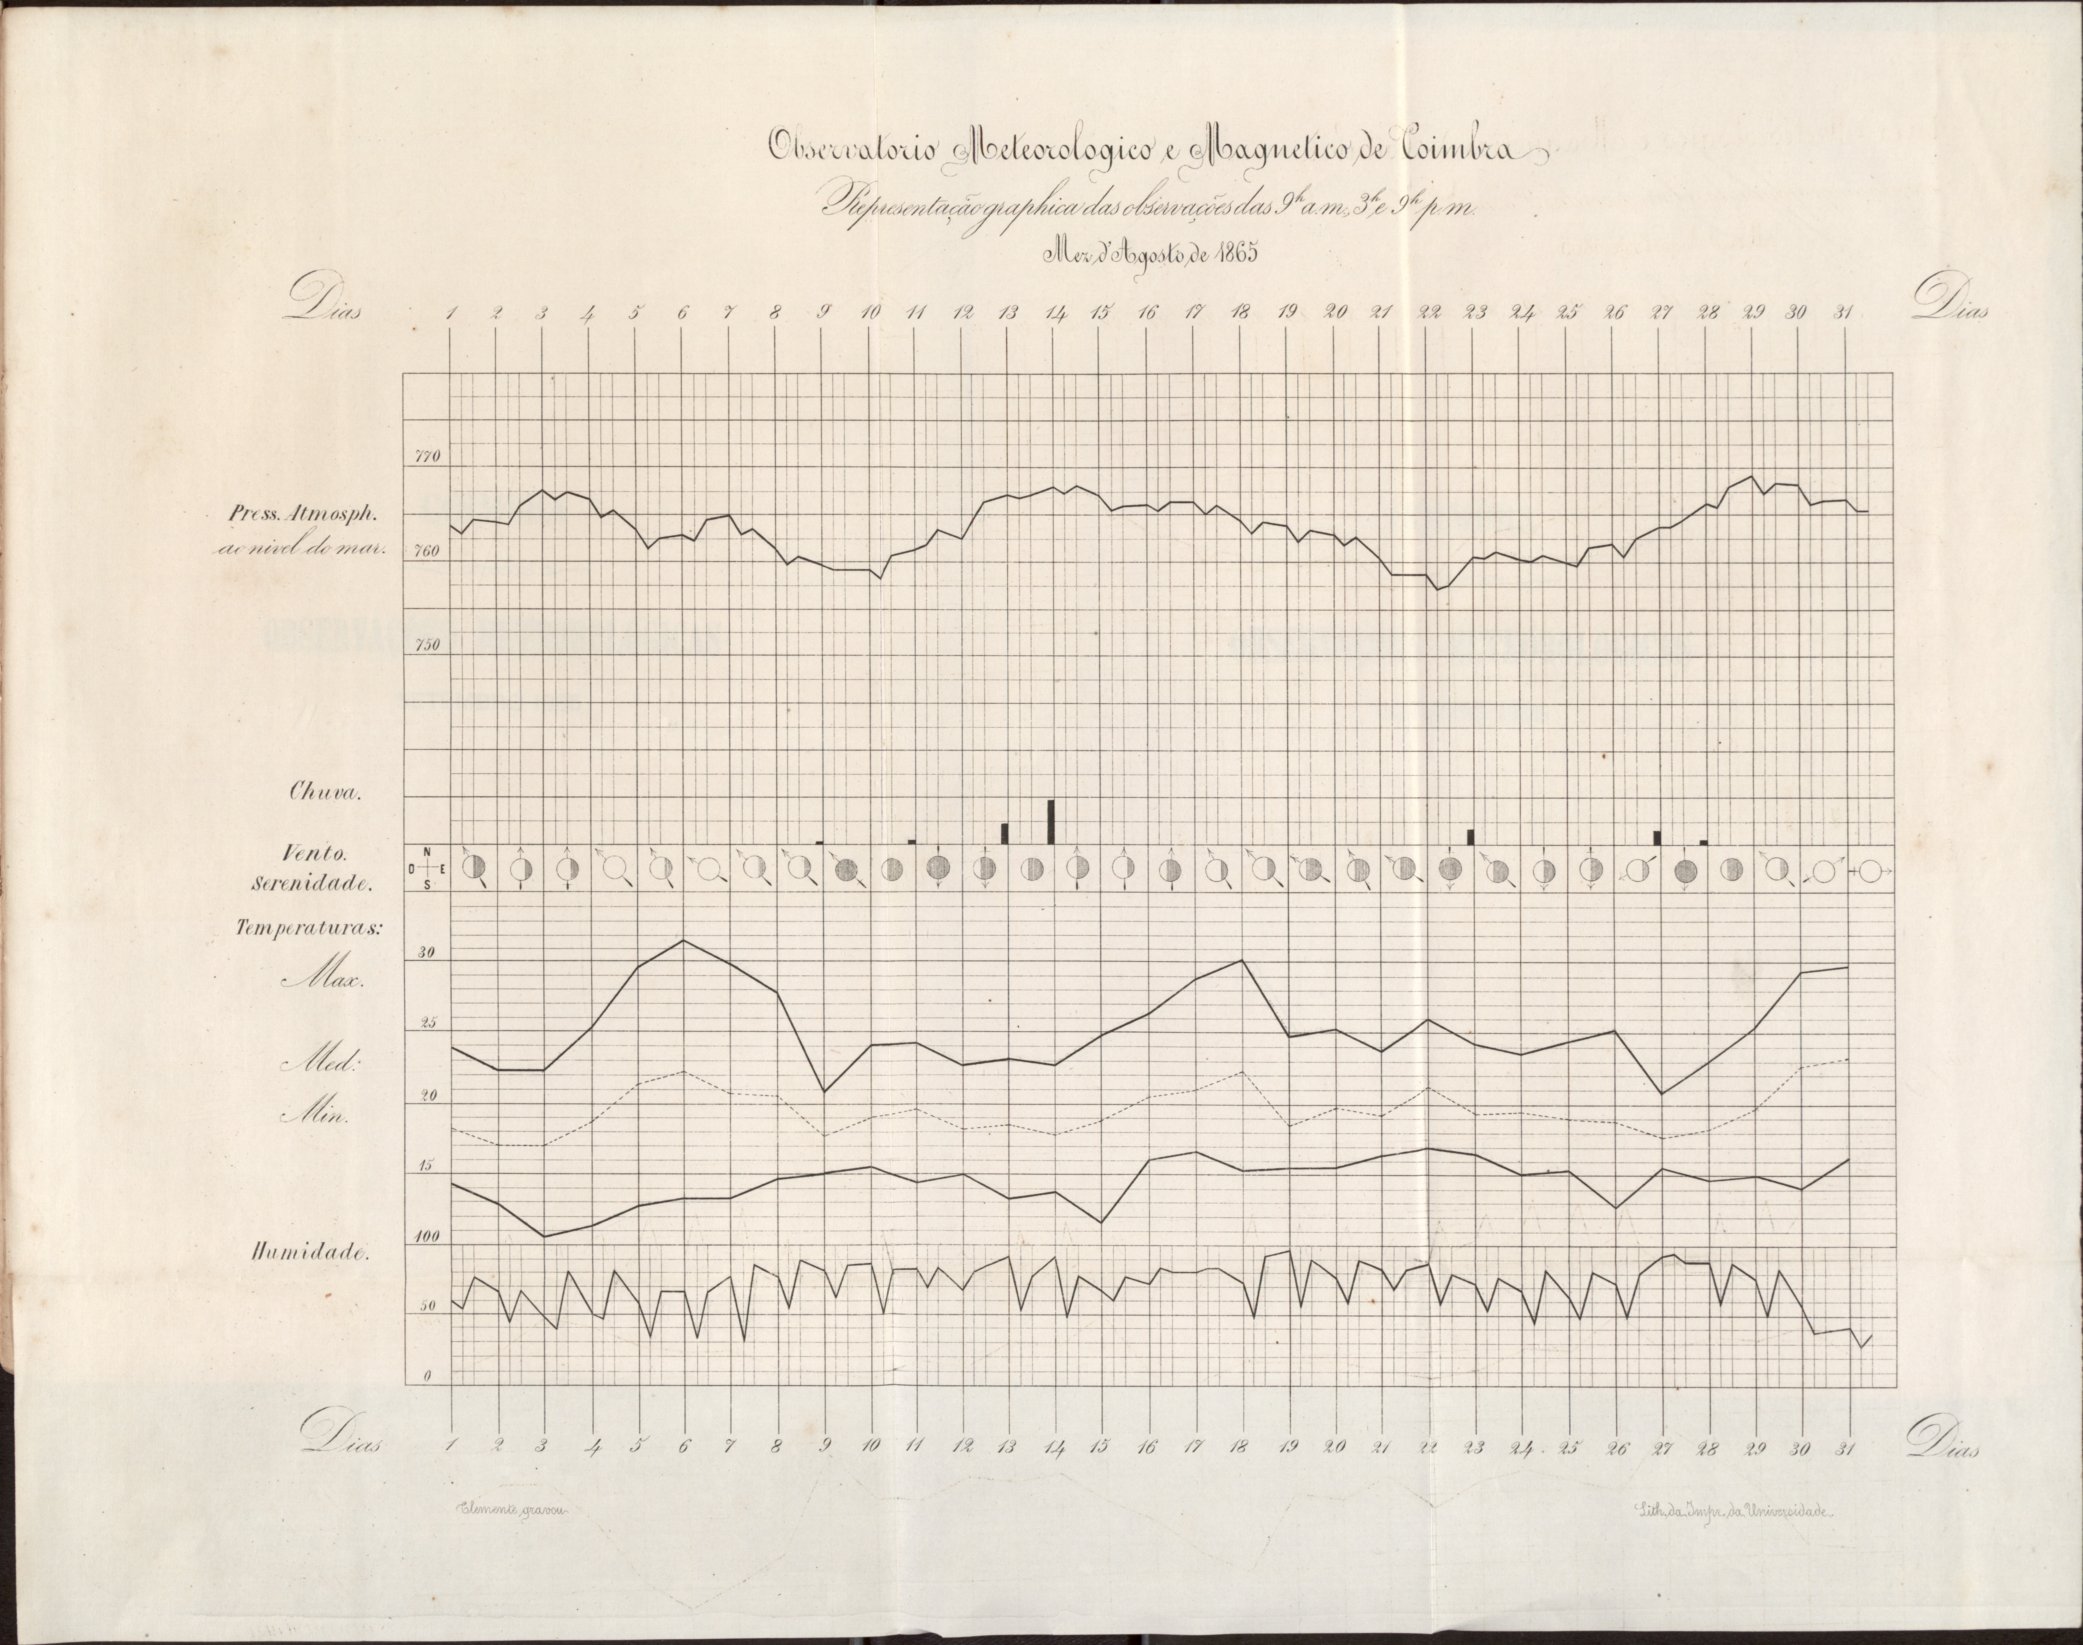 Observatorio Meteorologico e Magnetico de Coimbra
Representação graphica das observações das 9h a.m., 3h e 9h p.m.
Mez d'Agosto de 1865
Dias 1 2 3 4 5 6 7 8 9 10 11 12 13 14 15 16 17 18 19 20 21 22 23 24 25 26 27 28 29 30 31 Dias
770
Press. Atmosph.
ao nivel do mar.
760
750
Chuva.
Vento.
Serenidade.
N
O E
S
Temperaturas:
30
Max.
25
Med:
20
Min.
15
100
Humidade.
50
0
Dias 1 2 3 4 5 6 7 8 9 10 11 12 13 14 15 16 17 18 19 20 21 22 23 24 25 26 27 28 29 30 31 Dias
Clemente gravou
Lith. da Impr. da Universidade